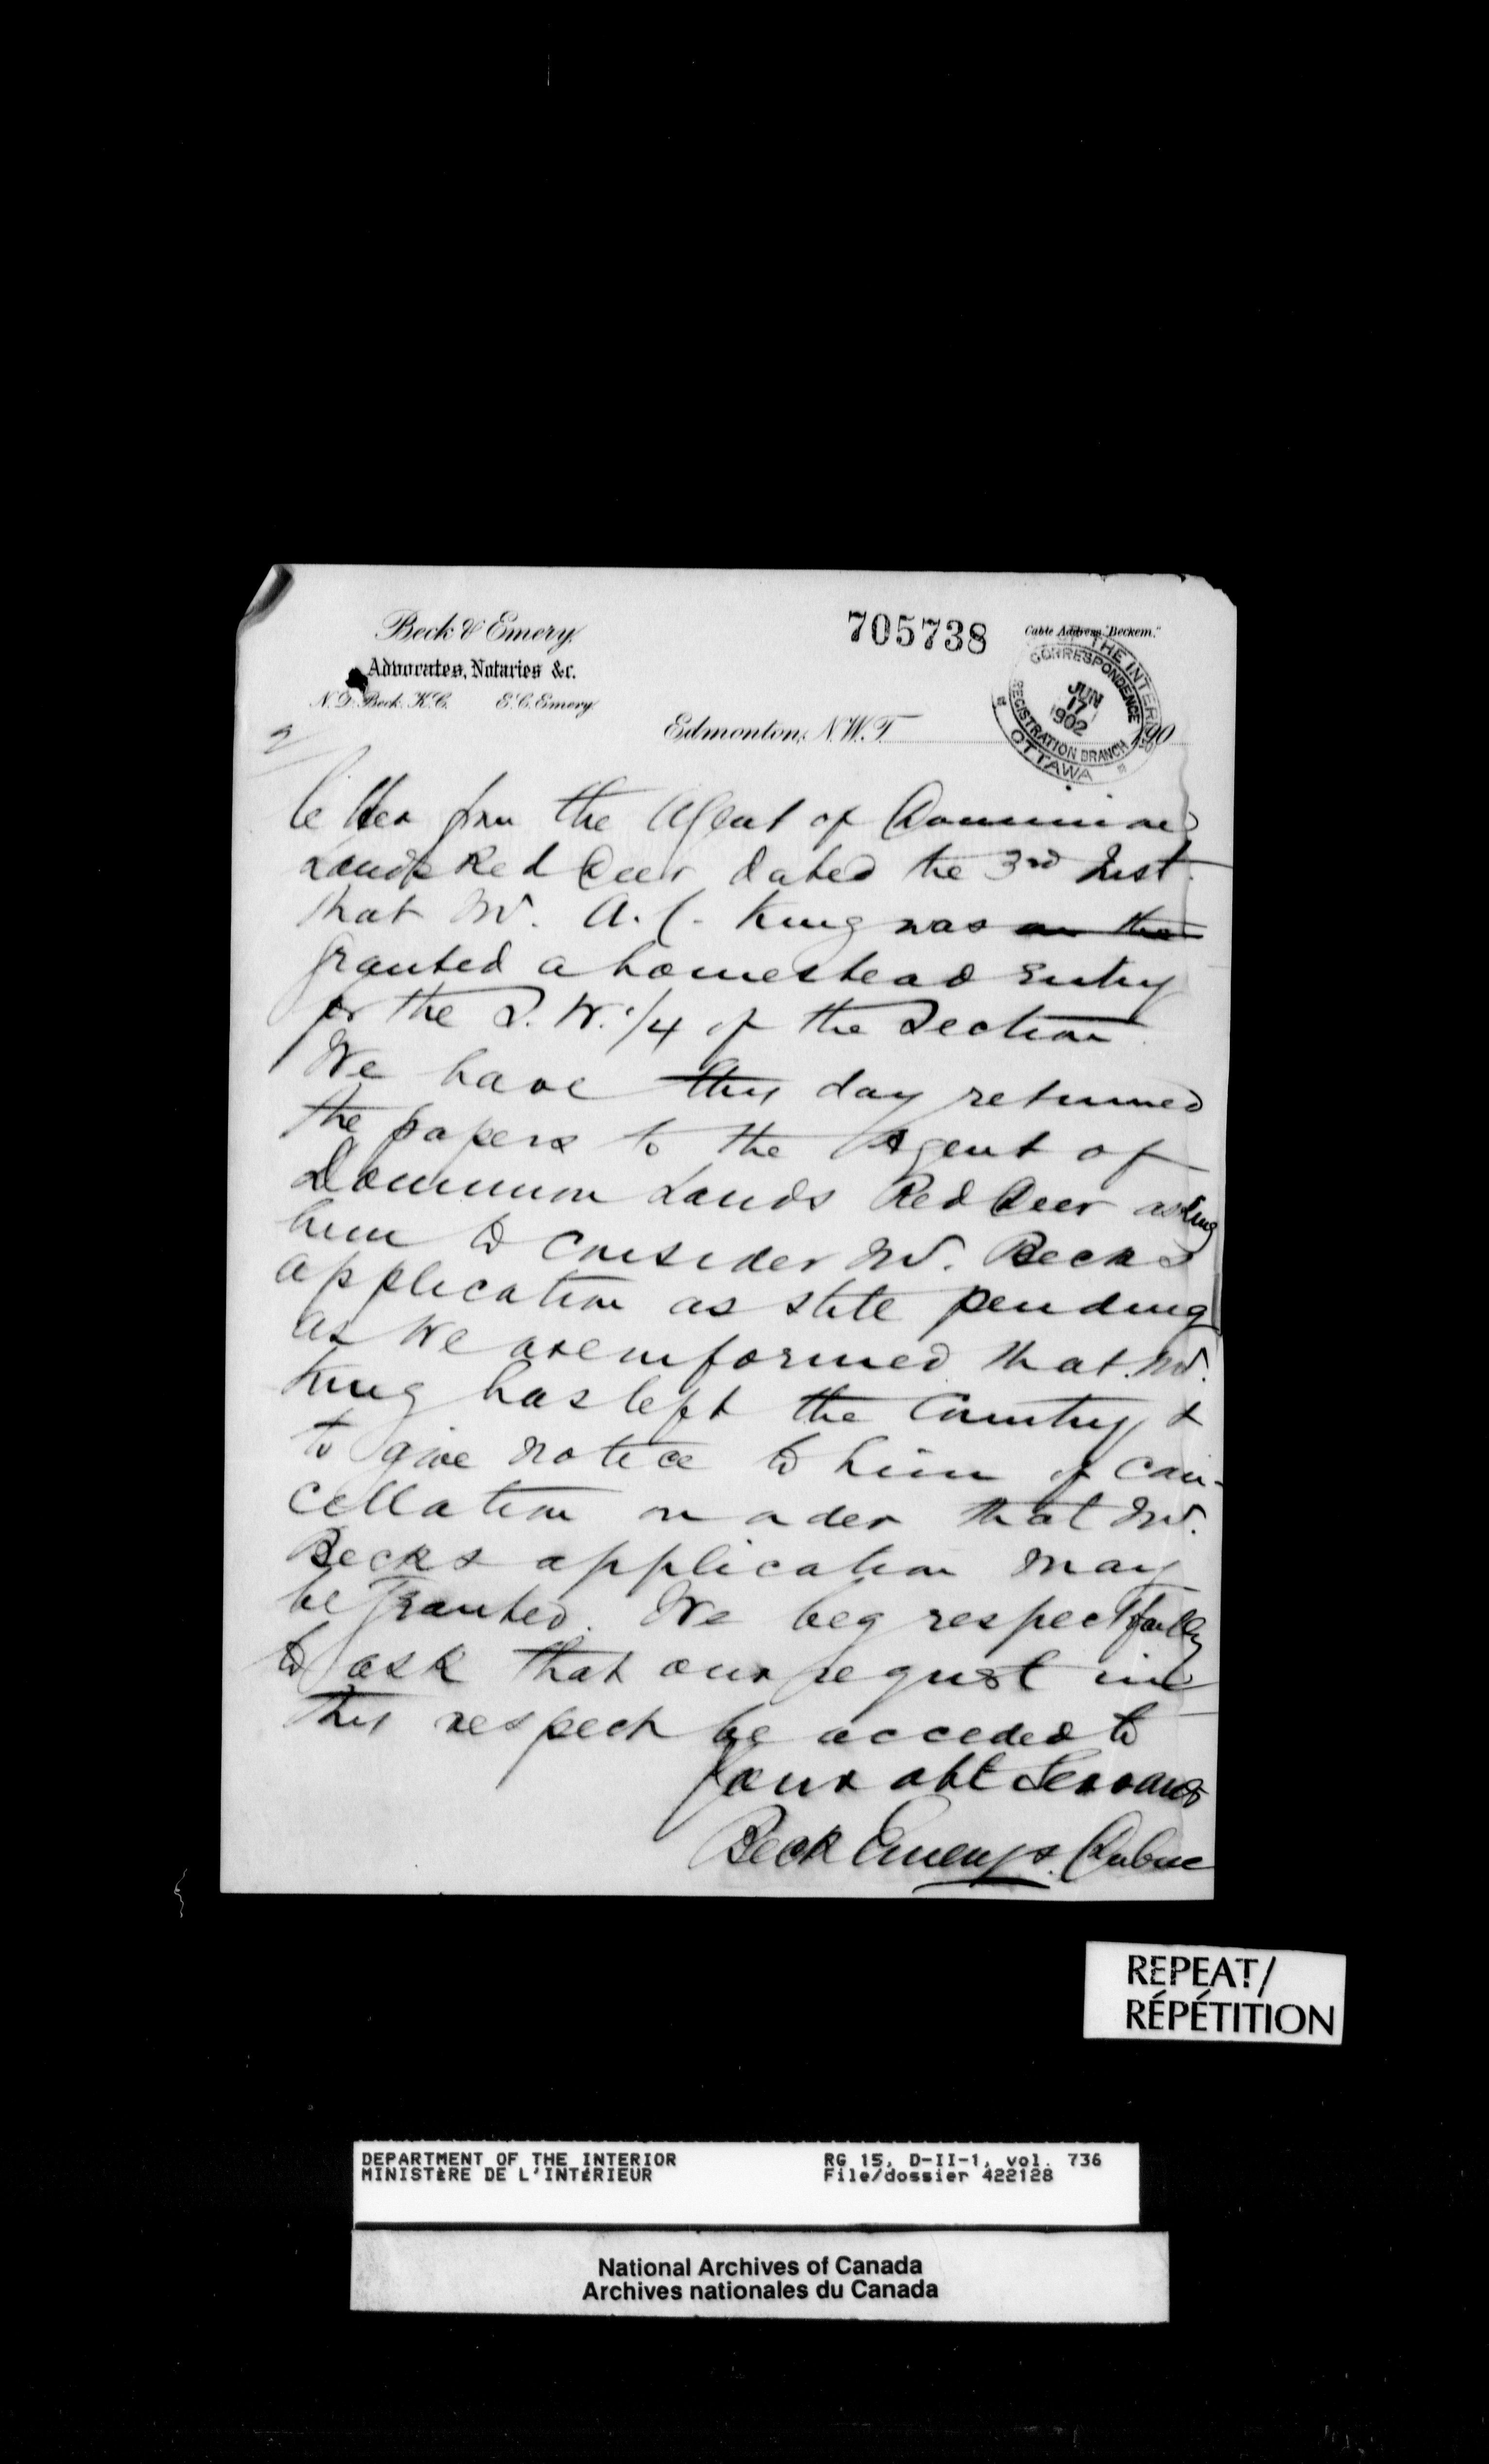 Beck & Emery.
Advocates, Notaries &c.
N. D. Beck. K.C. E. C. Emery.
705738
Cable Address, "Beckem."
THE INTERIOR
CORRESPONDENCE
JUN
17
1902
REGISTRATION BRANCH
OTTAWA
Edmonton, N.W.T. 190
2
letter from the Agent of Dominion
Lands Red Deer dated the 3rd Inst.
that Mr. A. C. King was on the
granted a homestead entry
for the S. W. 1/4 of the Section.
We have this day returned
the papers to the Agent of
Dominion Lands Red Deer asking
him to consider Mr. Becks
application as still pending
as we are informed that Mr.
King has left the Country &
to give notice to him of can-
cellation in order that Mr.
Becks application may
be granted. We beg respectfully
to ask that our request in
this respect be acceded to
Your obt Servants
Beck Emery & Dubuc
REPEAT/
RÉPÉTITION
DEPARTMENT OF THE INTERIOR RG 15, D-II-1, vol. 736
MINISTÈRE DE L'INTÉRIEUR File/dossier 422128
National Archives of Canada
Archives nationales du Canada